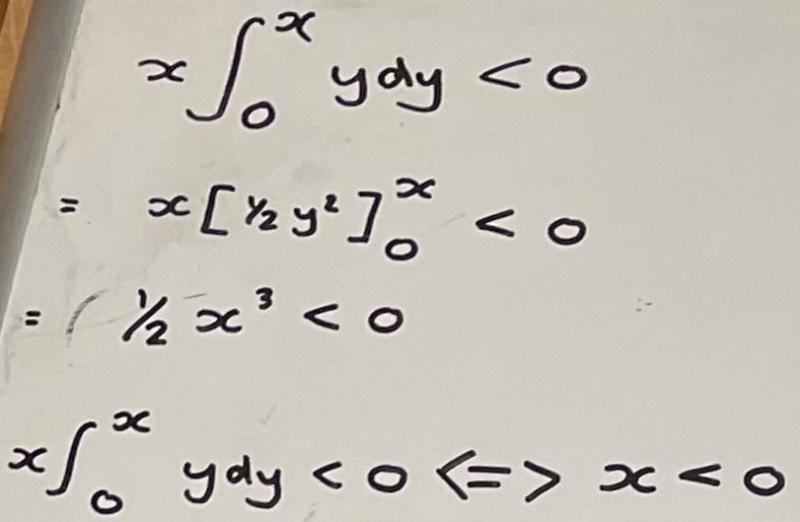 x∫₀ˣ ydy < 0
= x[½ y²]₀ˣ < 0
= ½ x³ < 0
x∫₀ˣ ydy < 0 <=> x < 0